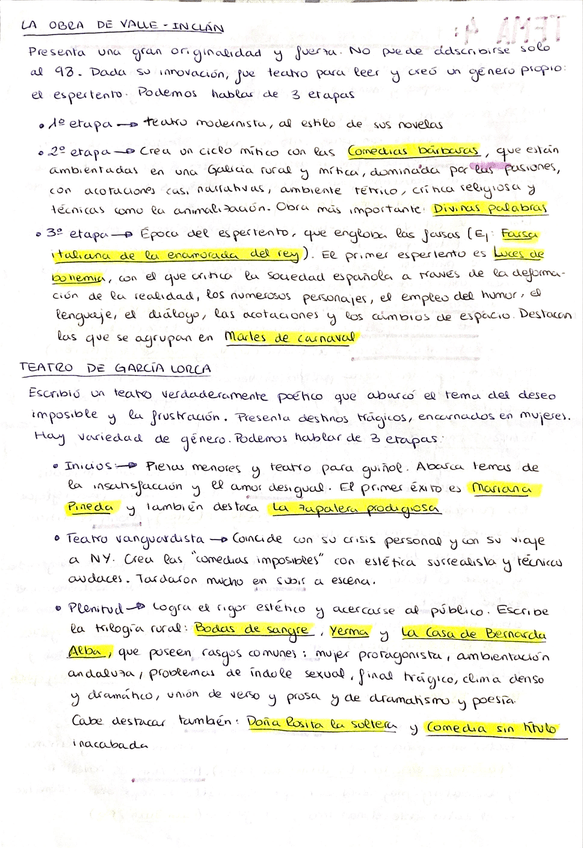 LA OBRA DE VALLE-INCLÁN
Presenta una gran originalidad y fuerza. No puede ddscribirse solo
al 98. Dada su innovación, fue teatro para leer y creó un género propio:
el espertento. Podemos hablar de 3 etapas
• 1ª etapa → teatro modernista, al estilo de sus novelas
• 2ª etapa → Crea un ciclo mítico con las Comedias bárbaras, que están
ambientadas en una Galicia rural y mítica, dominada por las pasiones,
con acotaciones casi narrativas, ambiente tétrico, crítica religiosa y
técnicas como la animalización. Obra más importante: Divinas palabras
• 3ª etapa → Época del espertento, que engloba las farsas (Ej: Farsa
italiana de la enamorada del rey). El primer espertento es Luces de
bohemia, con el que critica la sociedad española a través de la deforma-
ción de la realidad, los numerosos personajes, el empleo del humor, el
lenguaje, el diálogo, las acotaciones y los cambios de espacio. Destacan
las que se agrupan en Martes de carnaval
TEATRO DE GARCÍA LORCA
Escribió un teatro verdaderamente poético que abarcó el tema del deseo
imposible y la frustración. Presenta destinos trágicos, encarnados en mujeres.
Hay variedad de género. Podemos hablar de 3 etapas:
• Inicios → Piezas menores y teatro para guiñol. Abarca temas de
la insatisfacción y el amor desigual. El primer éxito es Mariana
Pineda y también destaca La zapatera prodigiosa
• Teatro vanguardista → Coincide con su crisis personal y con su viaje
a NY. Crea las "comedias imposibles" con estética surrealista y técnicas
audaces. Tardaron mucho en subir a escena.
• Plenitud → Logra el rigor estético y acercarse al público. Escribe
la trilogía rural: Bodas de sangre, Yerma y La Casa de Bernarda
Alba, que poseen rasgos comunes: mujer protagonista, ambientación
andaluza, problemas de índole sexual, final trágico, clima denso
y dramático, unión de verso y prosa y de dramatismo y poesía
Cabe destacar también: Doña Rosita la soltera y Comedia sin título
inacabada